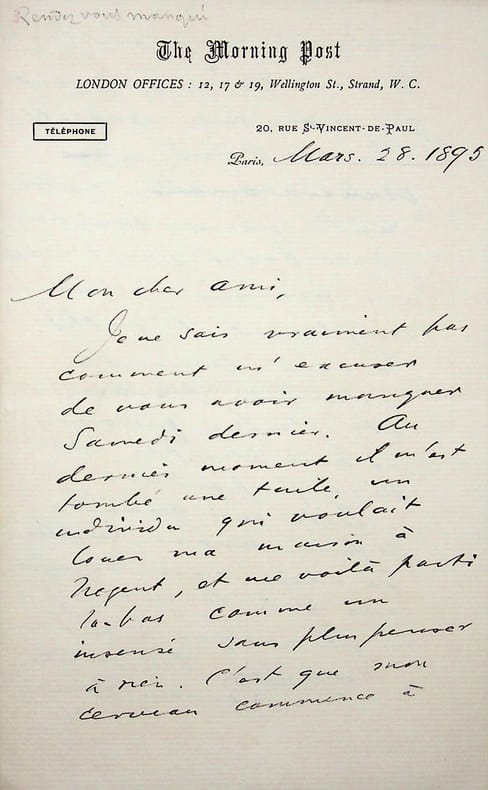 Rendez vous manqué
The Morning Post
LONDON OFFICES : 12, 17 & 19, Wellington St., Strand, W. C.
TÉLÉPHONE
20, RUE St-VINCENT-DE-PAUL
Paris, Mars. 28. 1895
Mon cher ami,
Je ne sais vraiment pas
comment m'excuser
de vous avoir manquer
Samedi dernier. Au
dernier moment il m'est
tombé une tuile, un
individu qui voulait
louer ma maison à
Nogent, et me voilà parti
la-bas comme un
insensé sans plus penser
à rien. C'est que mon
cerveau commence à